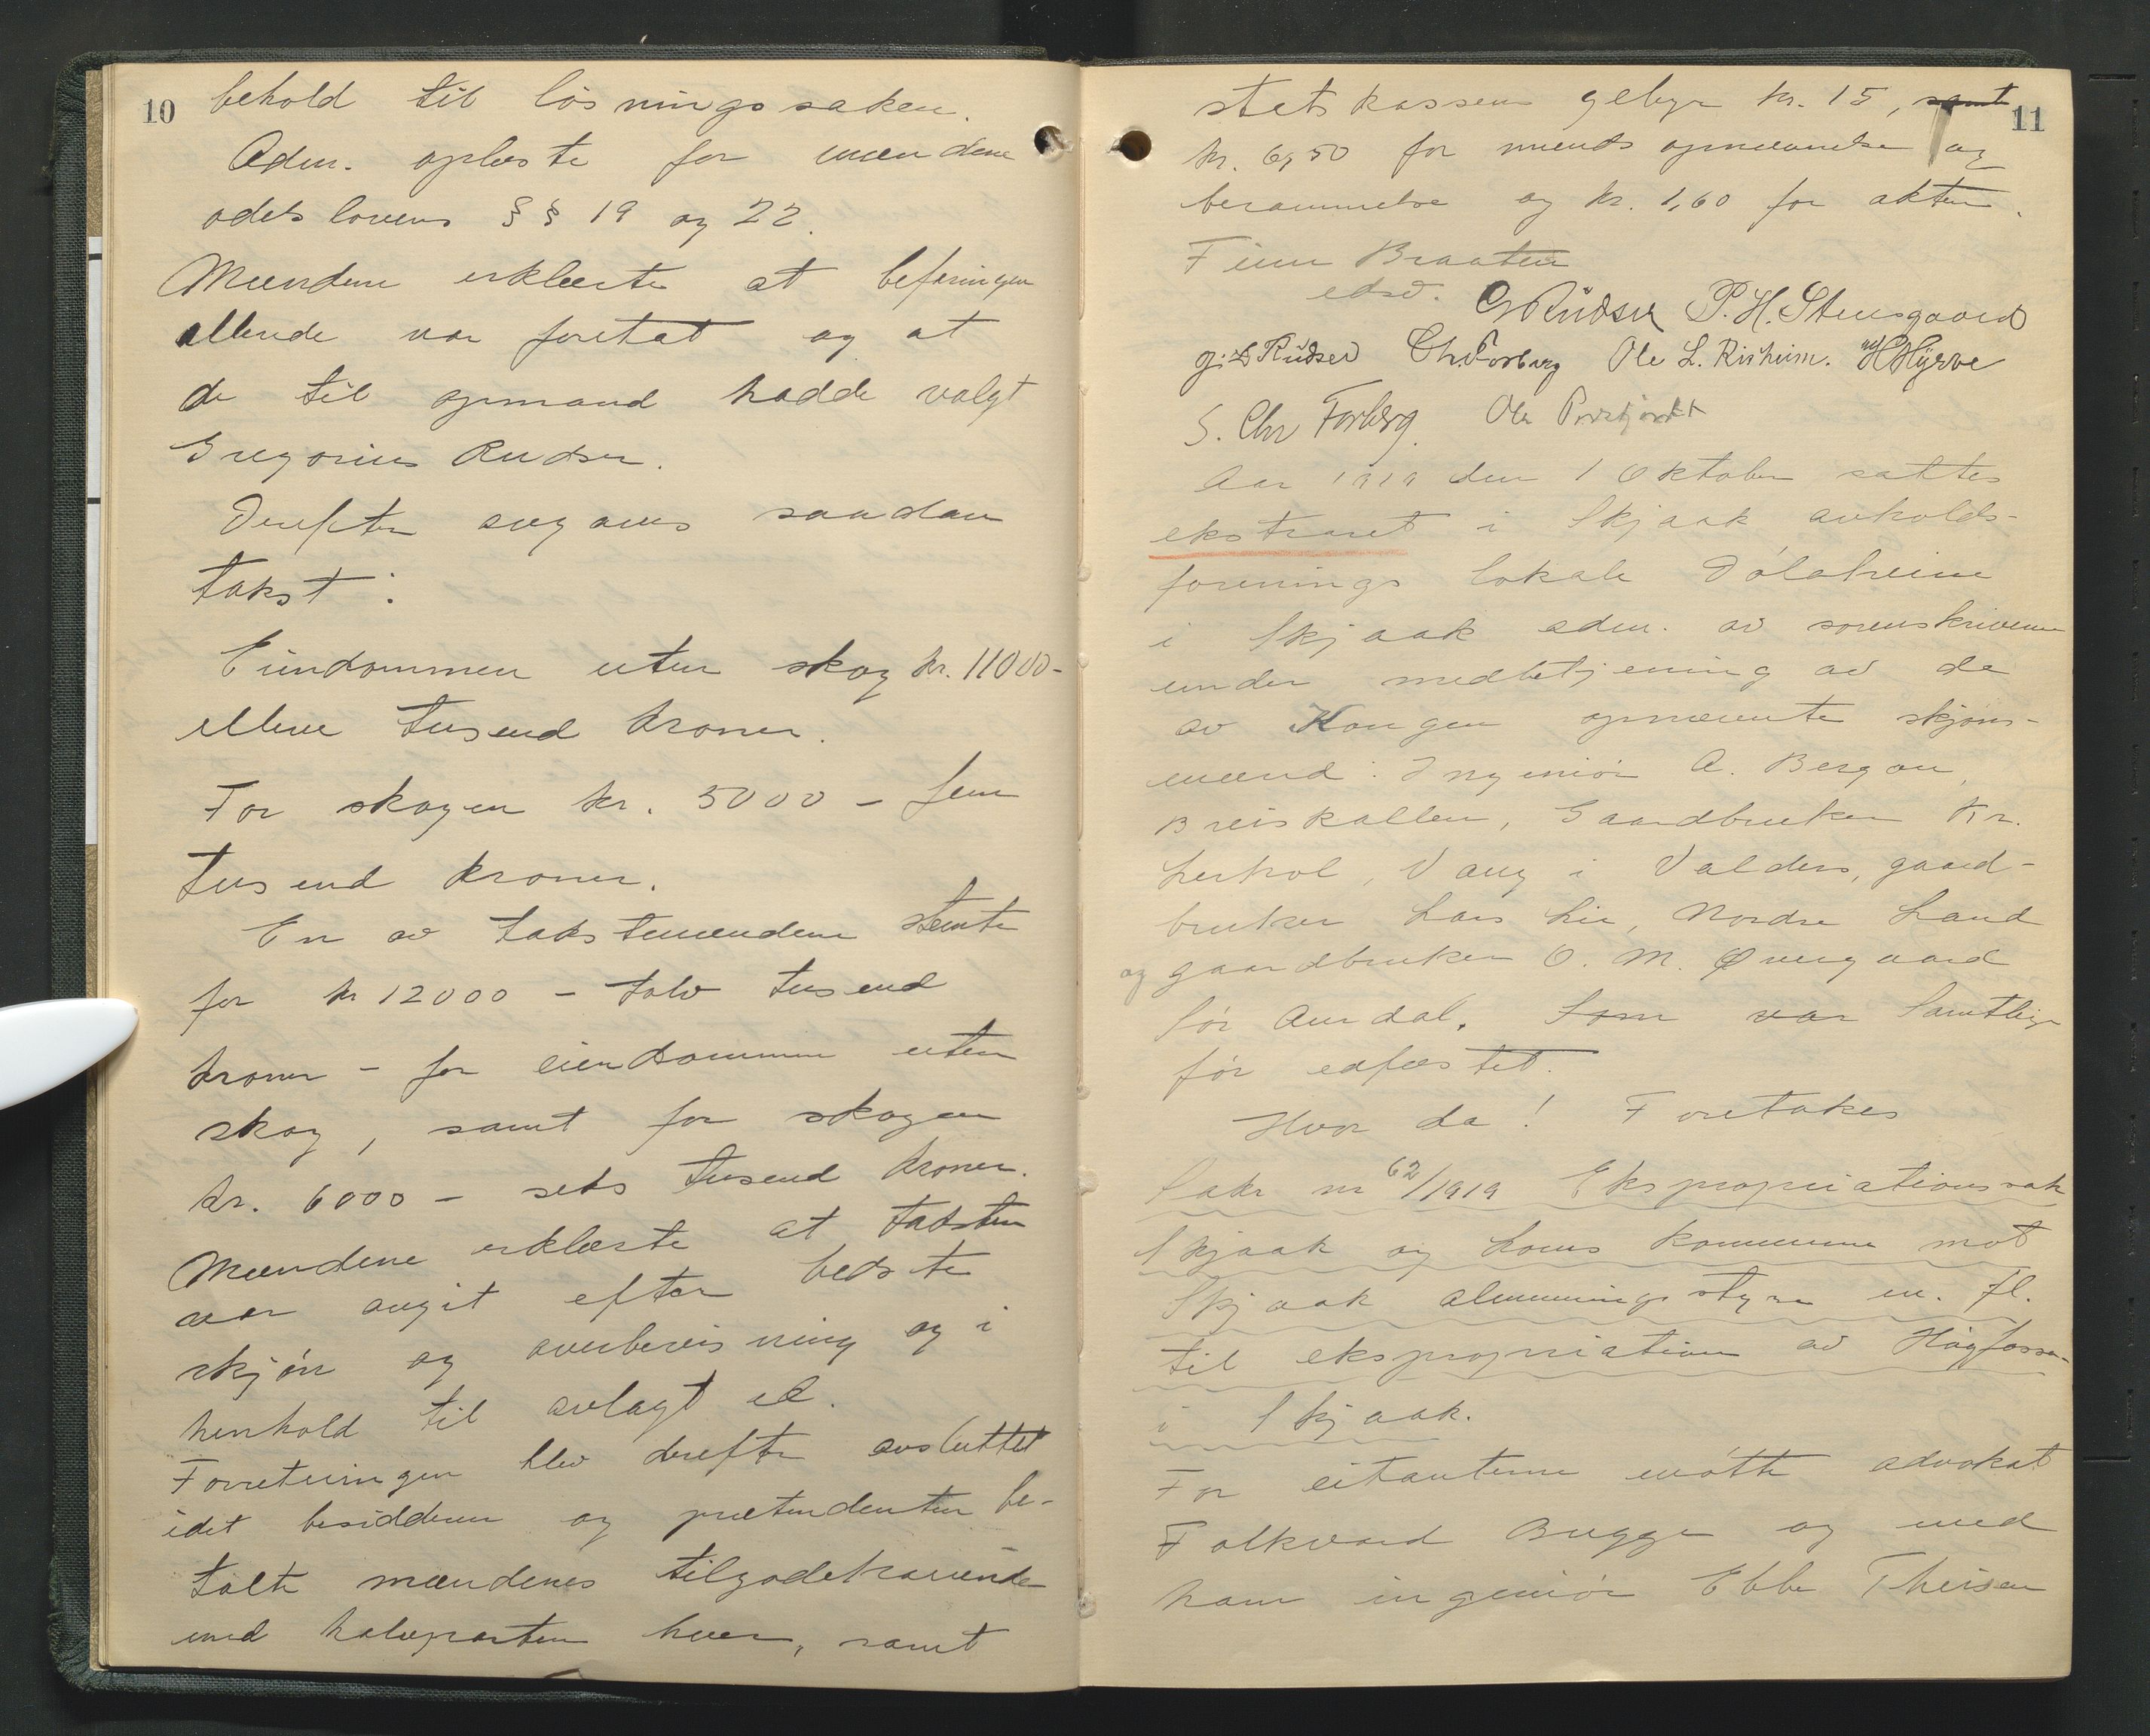 10
behold til løsningssaken.
Adm. oplæste for mændene
odelslovens §§ 19 og 22.
Mændene erklærte at befaringen
allerede var foretat og at
de til opmand hadde valgt
Gregorius Rudser.
Derefter avgaves saadan
takst:
Eiendommen uten skog kr. 11000-
elleve tusend kroner.
For skogen kr. 5000 - fem
tusend kroner.
En av takstmændene stemte
for kr 12000 - tolv tusend
kroner - for eiendommen uten
skog, samt for skogen
kr. 6000 - seks tusend kroner.
Mændene erklærte at taksten
var avgit efter bedste
skjøn og overbevisning og i
henhold til avlagt ed.
Forretningen blev derefter avsluttet
idet besidderen og prætendenten be-
talte mændenes tilgodehavende
med halvparten hver, samt
11
statskassens gebyr kr. 15, samt
kr. 6,50 for mænds opnævnelse og
berammelse og kr. 1,60 for akten.
Finn Braaten
edsv. G Rudser P. H. Stensgaard
Rudser Chr. Forberg Ole L. Risheim. H Hyrve
S. Chr Forberg. Ole
Aar 1919 den 1 Oktober sattes
ekstraret i Skjaak avholds-
forenings lokale Dølaheim
i Skjaak adm. av sorenskriveren
under medbetjening av de
av Kongen opnævnte skjøns-
mænd: Ingeniør A. Bergan,
Breiskallen, Gaardbruker Kr.
Leirhol, Vang i Valdres, gaard-
bruker Lars Lie, Nordre Land
og gaardbruker O. M. Øvergaard
Sør Aurdal. Som var Samtlige
før edfæstet.
Hvor da! Foretakes
Sak nr 62/1919 Ekspropriationssak
Skjaak og Loms kommune mot
Skjaak almenningsstyre m. fl.
til ekspropriation av Høgfossen
i Skjaak.
For citanterne møtte advokat
Folkvard Bugge og med
ham ingeniør Ebbe Theisen